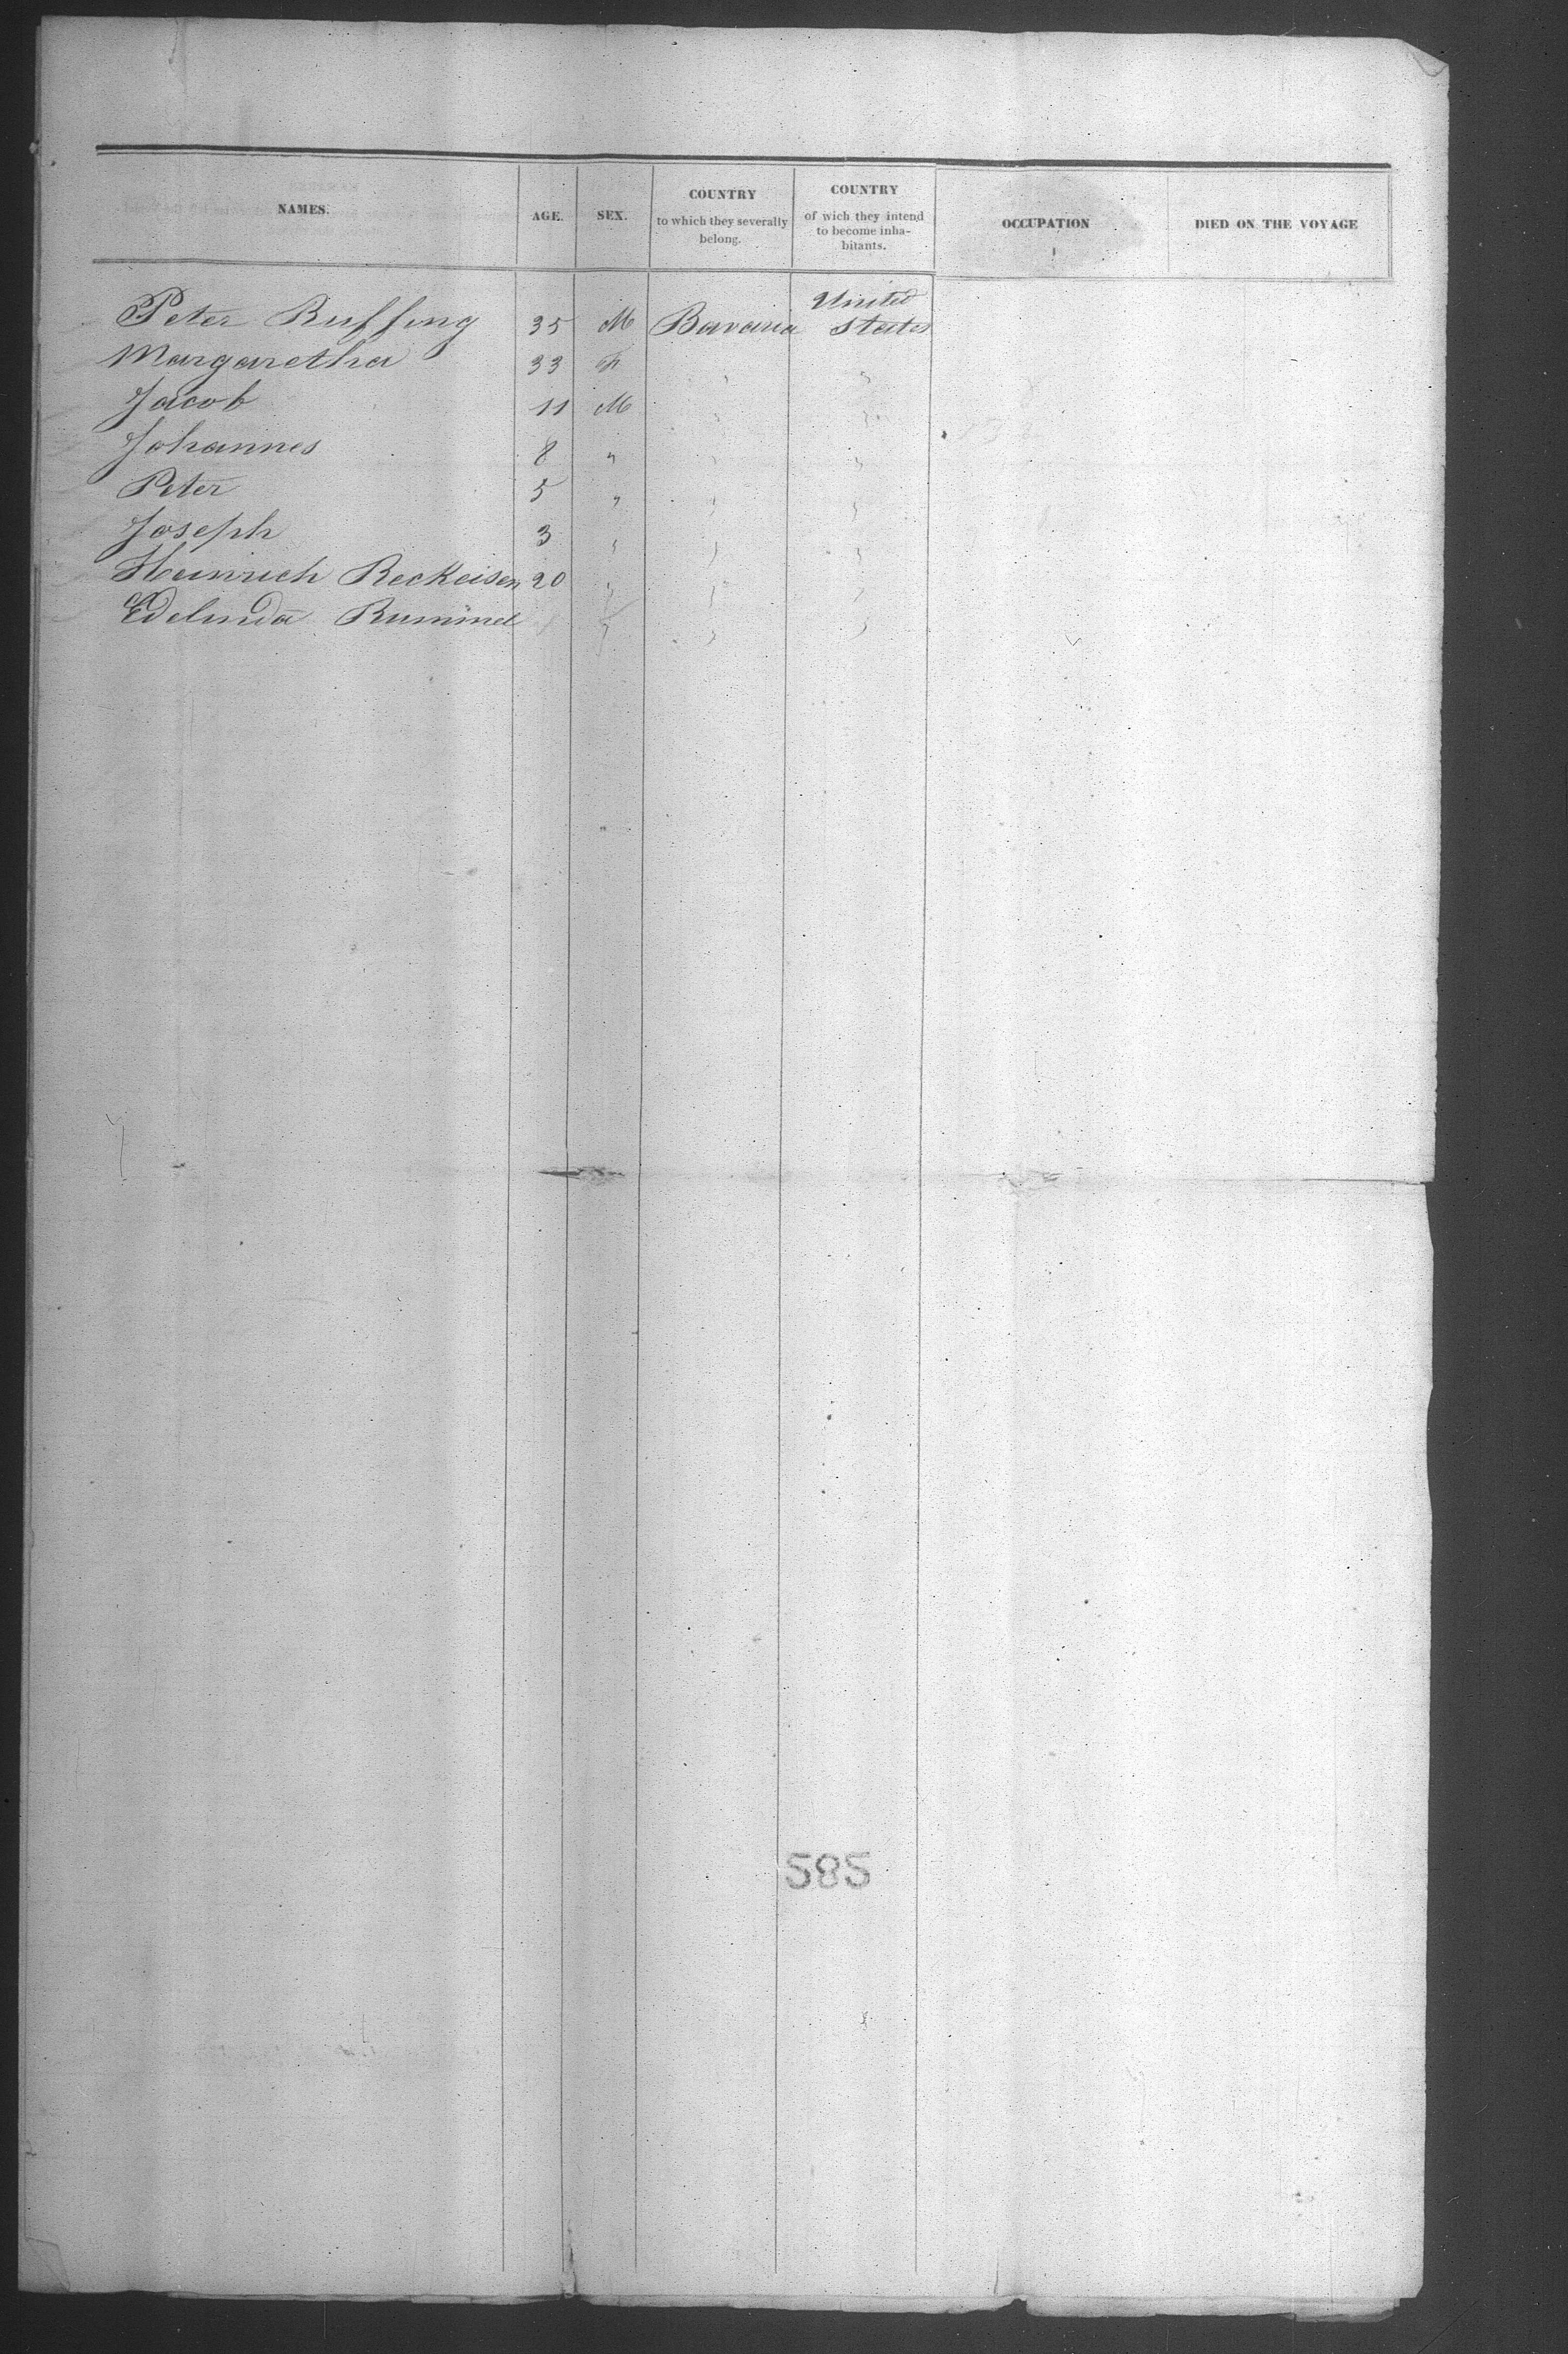 NAMES. AGE. SEX. COUNTRY to which they severally belong. COUNTRY of wich they intend to become inha-bitants. OCCUPATION DIED ON THE VOYAGE
United
Peter Ruffing 35 M Bavaria States
Margaretha 33 F " "
Jacob 11 M " "
Johannes 8 " " "
Peter 5 " " "
Joseph 3 " " "
Heinrich Reckeisen 20 " " "
Rummel " " "